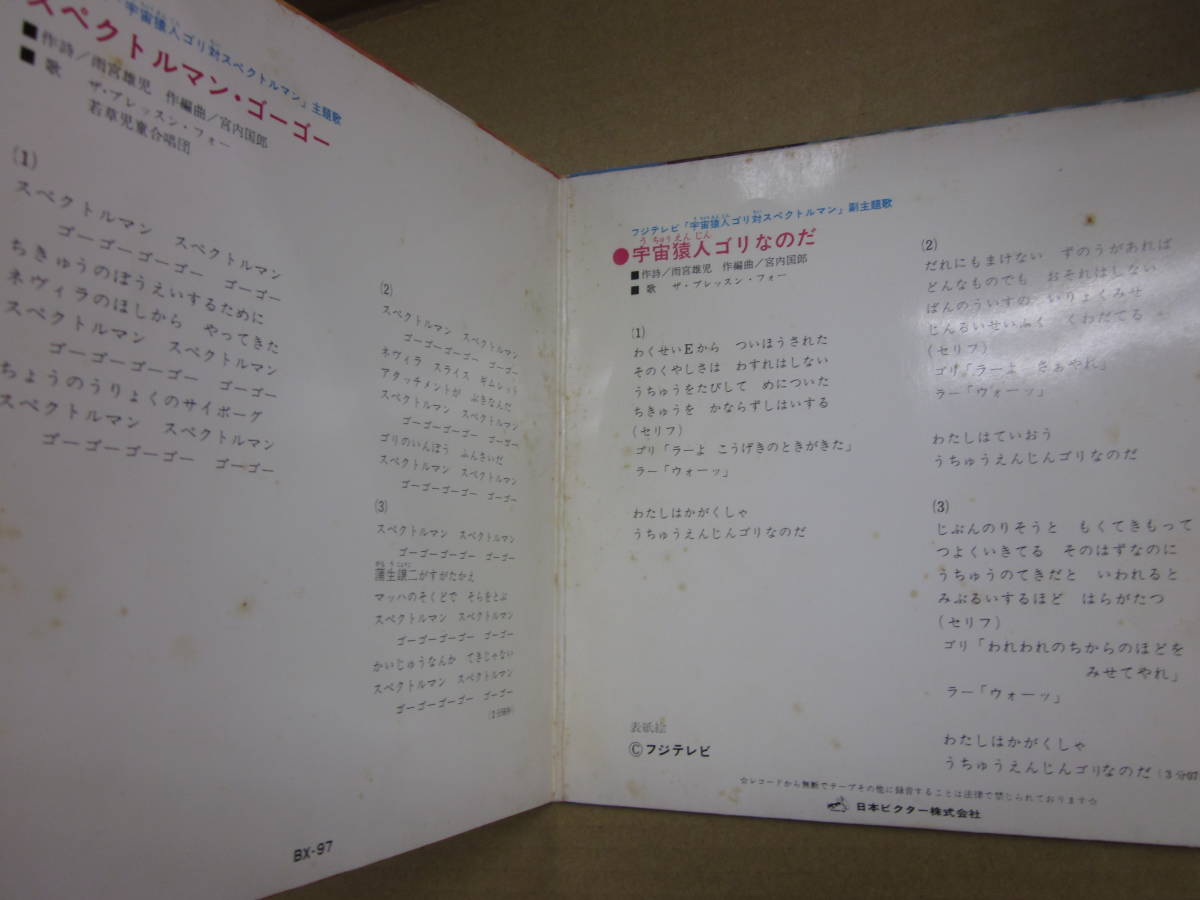 「宇宙猿人ゴリ対スペクトルマン」主題歌
スペクトルマン・ゴーゴー
■作詩/雨宮雄児 作編曲/宮内国郎
■ 歌 ザ・ブレッスン・フォー
若草児童合唱団
(1)
スペクトルマン スペクトルマン
ゴーゴーゴーゴー ゴーゴー
ちきゅうのぼうえいするために
ネヴィラのほしから やってきた
スペクトルマン スペクトルマン
ゴーゴーゴーゴー ゴーゴー
ちょうのうりょくのサイボーグ
スペクトルマン スペクトルマン
ゴーゴーゴーゴー ゴーゴー
(2)
スペクトルマン スペクトルマン
ゴーゴーゴーゴー ゴーゴー
ネヴィラ スライス ギムレット
アタッチメントが ぶきなんだ
スペクトルマン スペクトルマン
ゴーゴーゴーゴー ゴーゴー
ゴリのいんぼう ふんさいだ
スペクトルマン スペクトルマン
ゴーゴーゴーゴー ゴーゴー
(3)
スペクトルマン スペクトルマン
ゴーゴーゴーゴー ゴーゴー
蒲生譲二がすがたかえ
マッハのそくどで そらをとぶ
スペクトルマン スペクトルマン
ゴーゴーゴーゴー ゴーゴー
かいじゅうなんか てきじゃない
スペクトルマン スペクトルマン
ゴーゴーゴーゴー ゴーゴー
BX-97
フジテレビ「宇宙猿人ゴリ対スペクトルマン」副主題歌
うちゅうえんじん
●宇宙猿人ゴリなのだ
■作詩/雨宮雄児 作編曲/宮内国郎
■ 歌 ザ・ブレッスン・フォー
(1)
わくせいEから ついほうされた
そのくやしさは わすれはしない
うちゅうをたびして めについた
ちきゅうを かならずしはいする
(セリフ)
ゴリ「ラーよ こうげきのときがきた」
ラー「ウォーッ」
わたしはかがくしゃ
うちゅうえんじんゴリなのだ
(2)
だれにもまけない ずのうがあれば
どんなものでも おそれはしない
ばんのういすの いりょくみせ
じんるいせいふく くわだてる
(セリフ)
ゴリ「ラーよ さぁやれ」
ラー「ウォーッ」
わたしはていおう
うちゅうえんじんゴリなのだ
(3)
じぶんのりそうと もくてきもって
つよくいきてる そのはずなのに
うちゅうのてきだと いわれると
みぶるいするほど はらがたつ
(セリフ)
ゴリ「われわれのちからのほどを
みせてやれ」
ラー「ウォーッ」
わたしはかがくしゃ
うちゅうえんじんゴリなのだ(3分07
表紙絵
©フジテレビ
☆レコードから無断でテープその他に録音することは法律で禁じられております☆
日本ビクター株式会社